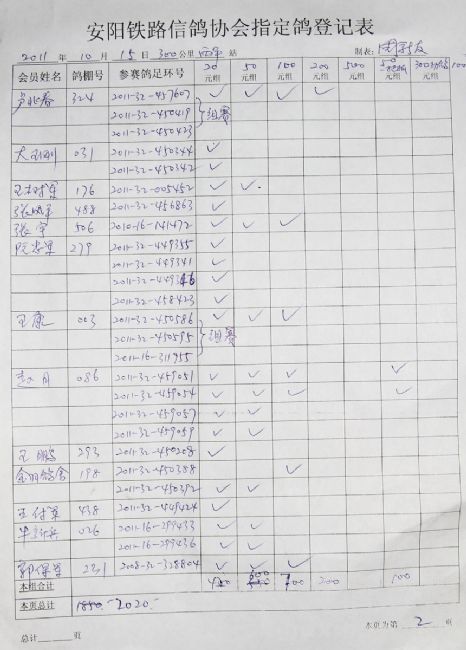 安阳铁路信鸽协会指定鸽登记表
2011 年 10 月 15 日 300 公里 西平 站 制表:
会员姓名 鸽棚号 参赛鸽足环号 20元组 50元组 100元组 200元组 500元组 50元组 300 100元组
324 2011-32-457607 ✓ ✓ ✓ ✓
2011-32-450419 组赛
2011-32-450423
031 2011-32-450344 ✓
2011-32-450342 ✓
176 2011-32-005452 ✓ ✓
488 2011-32-456863 ✓
张宇 506 2010-16-141472 ✓ ✓ ✓
279 2011-32-449355 ✓
2011-32-449341 ✓
2011-32-449346 ✓
2011-32-458423 ✓
王康 003 2011-32-450586 ✓ ✓ ✓
2011-32-450595 组赛
2011-16-311955
086 2011-32-459051 ✓ ✓ ✓ ✓
2011-32-459054 ✓ ✓ ✓ ✓
2011-32-459057 ✓ ✓
2011-32-459059 ✓ ✓
王鹏 293 2011-32-450208 ✓
198 2011-32-450388 ✓
2011-32-450392 ✓ ✓
王付军 438 2011-32-449424 ✓
026 2011-16-299433 ✓ ✓
2011-16-299436 ✓ ✓
郭保军 231 2008-32-328804 ✓ ✓ ✓
本组合计 600 700 200 100
本页总计 1850 2020
总计 页 本页为第 2 页